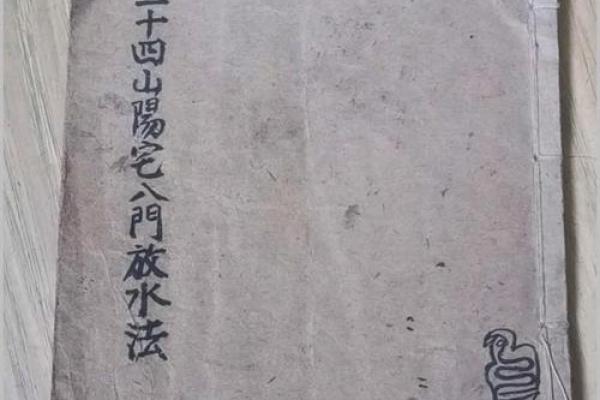 二十四山陽宅八門放水法